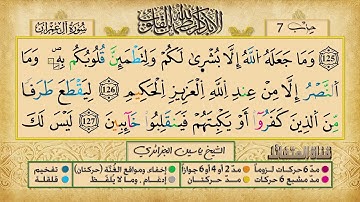 ألا بذكر الله تطمئن القلوب
سُورَةُ آلِ عِمْرَان
حزب 7
125 وَمَا جَعَلَهُ اللَّهُ إِلَّا بُشْرَىٰ لَكُمْ وَلِتَطْمَئِنَّ قُلُوبُكُم بِهِۦ وَمَا
اَ۬لنَّصْرُ إِلَّا مِنْ عِندِ اِ۬للَّهِ اِ۬لْعَزِيزِ اِ۬لْحَكِيمِ 126 لِيَقْطَعَ طَرَفًا
مِّنَ اَ۬لذِينَ كَفَرُوٓاْ أَوْ يَكْبِتَهُمْ فَيَنقَلِبُواْ خَآئِبِينَ 127 لَيْسَ لَكَ
الشيخ ياسين الجزائري
مدّ 6 حركات لزوماً
مدّ 2 أو 4 أو 6 جوازاً
إخفاء، ومواقع الغُنَّة (حركتان)
تفخيم
مدّ مشبع 6 حركات
مدّ حركتان
إدغام، وما لا يُلفَظ
قلقلة